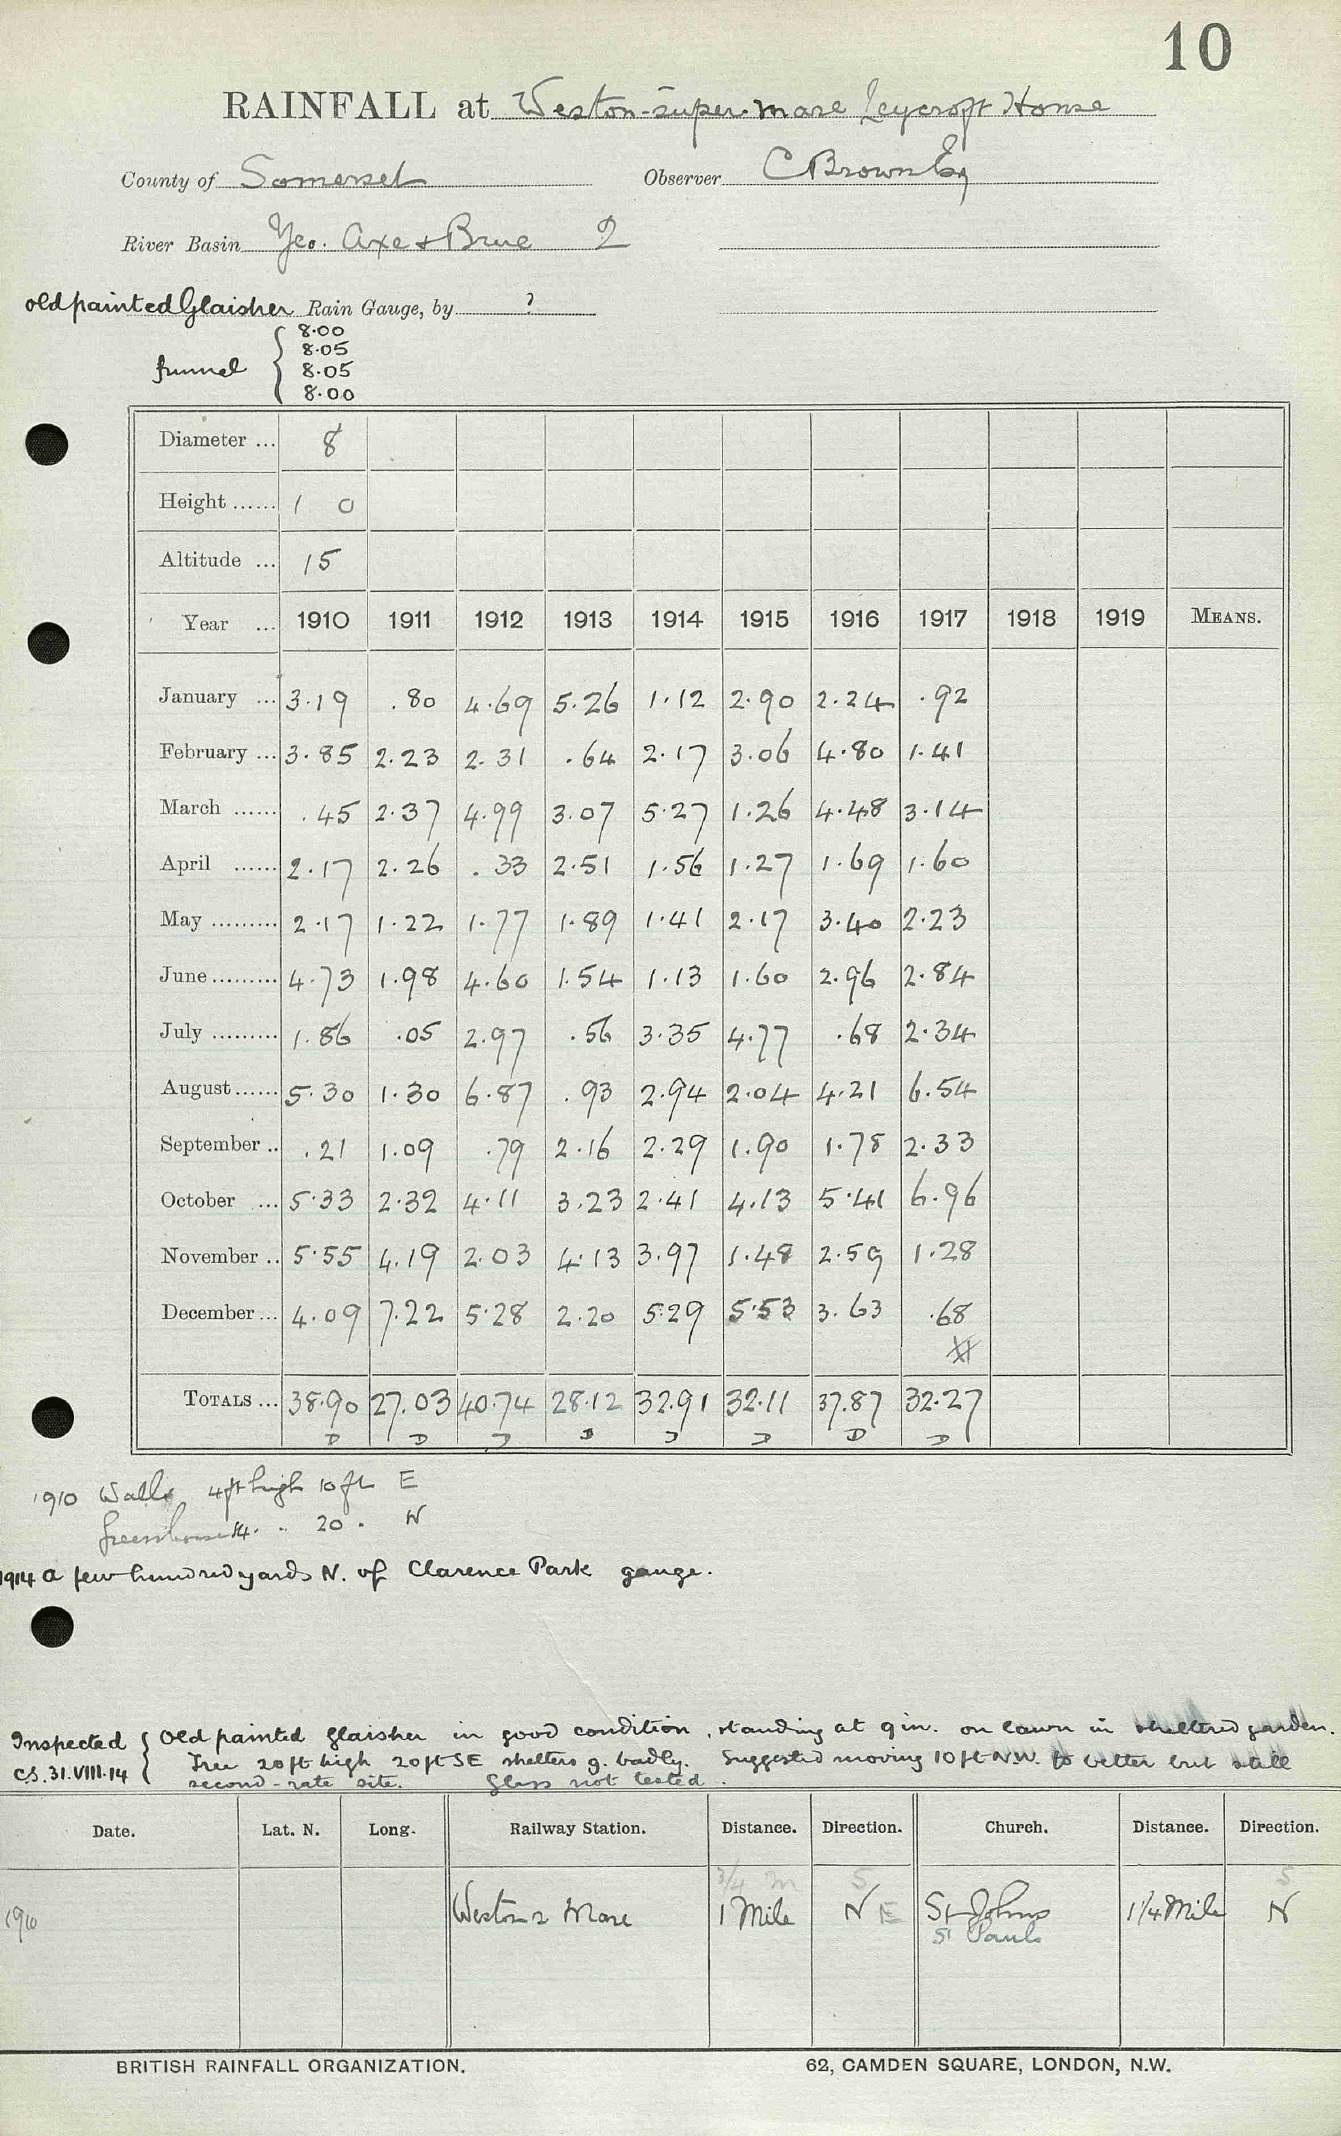 10
RAINFALL at Weston-super-mare Leycroft House
County of Somerset Observer C Brown Esq
River Basin Yeo. Axe & Brue 2
old painted Glaisher Rain Gauge, by ?
funnel { 8.00
8.05
8.05
8.00
Diameter ... 8
Height ...... 1 0
Altitude ... 15
Year ... 1910 1911 1912 1913 1914 1915 1916 1917 1918 1919 MEANS.
January ... 3.19 .80 4.69 5.26 1.12 2.90 2.24 .92
February ... 3.85 2.23 2.31 .64 2.17 3.06 4.80 1.41
March ...... .45 2.37 4.99 3.07 5.27 1.26 4.48 3.14
April ...... 2.17 2.26 .33 2.51 1.56 1.27 1.69 1.60
May ......... 2.17 1.22 1.77 1.89 1.41 2.17 3.40 2.23
June ......... 4.73 1.98 4.60 1.54 1.13 1.60 2.96 2.84
July ......... 1.86 .05 2.97 .56 3.35 4.77 .68 2.34
August ...... 5.30 1.30 6.87 .93 2.94 2.04 4.21 6.54
September .. .21 1.09 .79 2.16 2.29 1.90 1.78 2.33
October ... 5.33 2.32 4.11 3.23 2.41 4.13 5.41 6.96
November .. 5.55 4.19 2.03 4.13 3.97 1.48 2.59 1.28
December ... 4.09 7.22 5.28 2.20 5.29 5.53 3.63 .68
TOTALS ... 38.90 27.03 40.74 28.12 32.91 32.11 37.87 32.27
D D D D D D D D
1910 Walls 4ft high 10 ft E
Greenhouse 14. " 20 " N
1914 a few hundred yards N. of Clarence Park gauge.
Inspected { Old painted Glaisher in good condition, standing at 9 in. on lawn in sheltered garden.
C.S. 31.VIII.14 Tree 20 ft high 20 ft SE shelters g. badly. Suggested moving 10 ft N.W. to better but still
second-rate site. Glass not tested.
Date. Lat. N. Long. Railway Station. Distance. Direction. Church. Distance. Direction.
3/4 m S S
1910 Weston s Mare 1 Mile N E St Johns 1 1/4 Mile N
St Pauls
BRITISH RAINFALL ORGANIZATION. 62, CAMDEN SQUARE, LONDON, N.W.